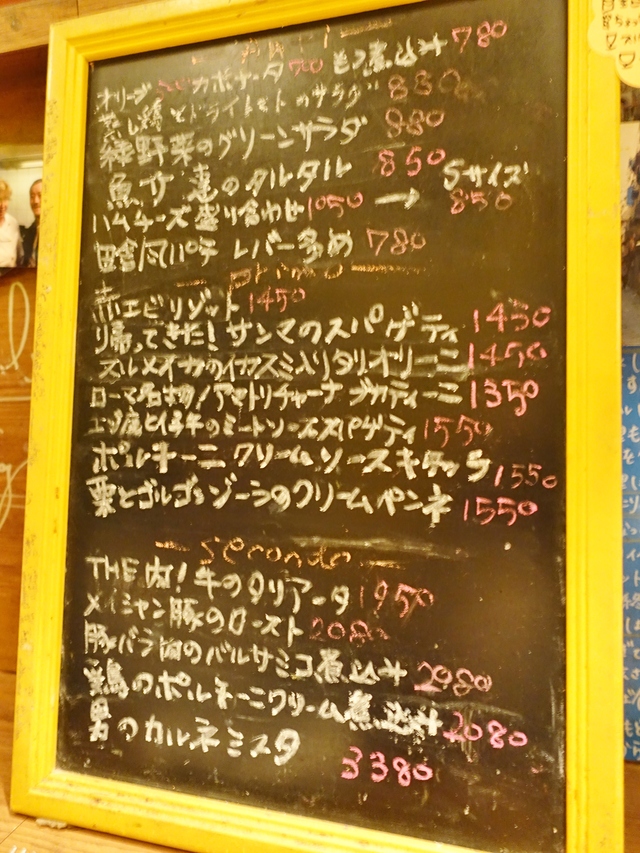 オリーブ カポナータ 700 モツ煮込み 780
蒸し鶏とドライトマトのサラダ 880
緑野菜のグリーンサラダ 880
魚介達のタルタル 850 Sサイズ
ハムチーズ盛り合わせ 1050 → 850
田舎風パテ レバー多め 780
ー primo ー
赤エビリゾット 1450
帰ってきた!サンマのスパゲティ 1450
スルメイカのイカスミ入りタリオリーニ 1450
ローマ名物!アマトリチャーナ ブカティーニ 1350
エゾ鹿と仔牛のミートソーススパゲティ 1550
ポルチーニクリームソース キタッラ 1550
栗とゴルゴンゾーラのクリームペンネ 1550
ー secondo ー
THE肉!牛のタリアータ 1950
メイシャン豚のロースト 2080
豚バラ肉のバルサミコ煮込み 2980
鶏のポルチーニクリーム煮込み 2080
男のカルネミスタ
3380